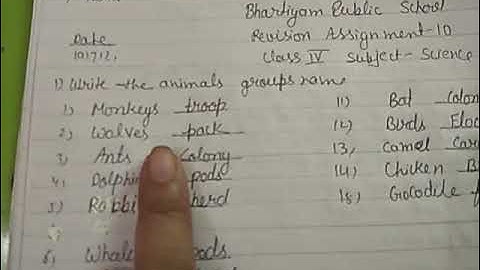 Bhartiyam Public School
Date Revision Assignment-10
Class IV Subject - Science
1) Write the animals groups name
1) Monkeys troop
2) Wolves pack
3) Ants Colony
4. Dolphin pods
5) Rabbi herd
6) Whale pods.
11) Bat Colon
12) Birds Floc
13, Camel Car
14) Chicken B
15) Crocodile